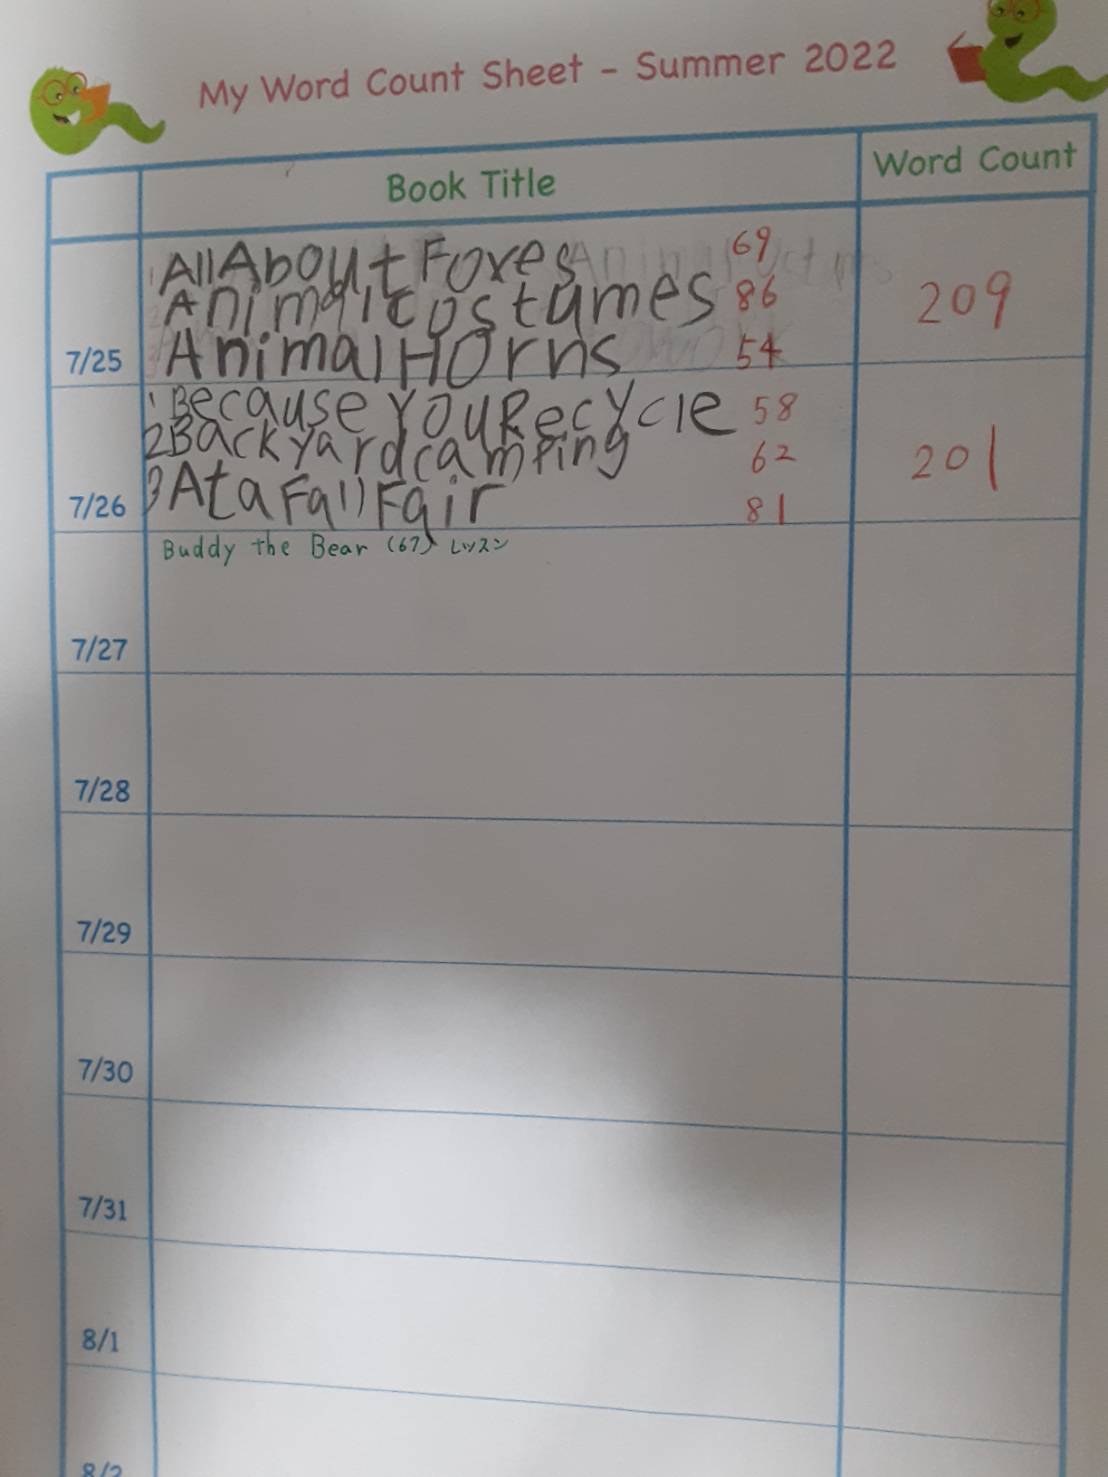 My Word Count Sheet - Summer 2022
Book Title Word Count
All About Foxes 69
Animal Costumes 86 209
7/25 Animal Horns 54
1 Because You Recycle 58
2 Backyard camping 62 201
7/26 3 At a Fall Fair 81
Buddy the Bear (67) レッスン
7/27
7/28
7/29
7/30
7/31
8/1
8/2